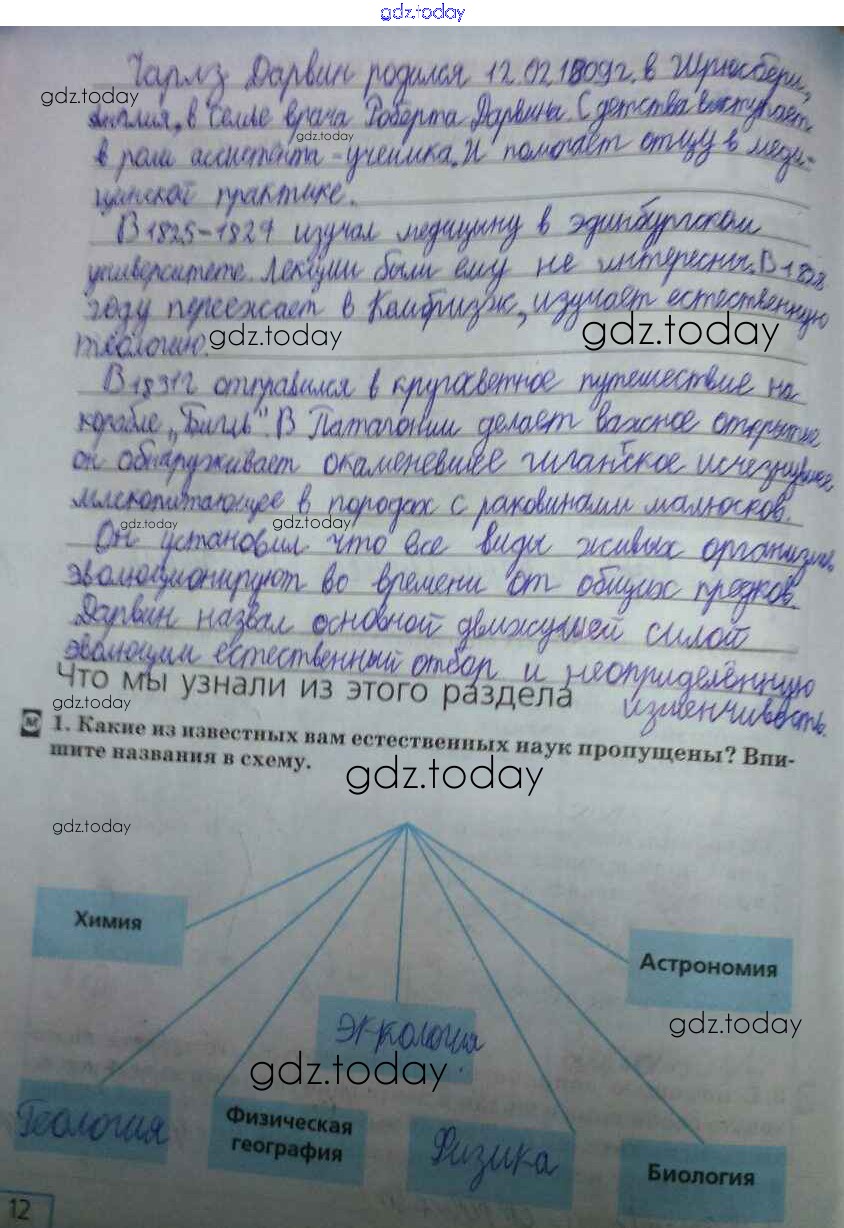 gdz.today
Чарлз Дарвин родился 12.02.1809г. в Шрюсбери,
gdz.today
Англия, в семье врача Роберта Дарвина. С детства выступает
gdz.today
в роли ассистента-ученика. И помогает отцу в меди-
цинской практике.
В 1825-1827 изучал медицину в эдинбургском
университете. Лекции были ему не интересны. В 1828
году переезжает в Кембридж, изучает естественную
теологию.
gdz.today
gdz.today
В 1831г отправился в кругосветное путешествие на
корабле „Бигль". В Патагонии делает важное открытие
он обнаруживает окаменевшее гигантское исчезнувшее
млекопитающее в породах с раковинами малюсков.
gdz.today
gdz.today
Он установил что все виды живых организмов
эволюционируют во времени от общих предков.
Дарвин назвал основной движущей силой
эволюции естественный отбор и неоприделённую
изменчивость.
Что мы узнали из этого раздела
gdz.today
м 1. Какие из известных вам естественных наук пропущены? Впи-
шите названия в схему.
gdz.today
gdz.today
Химия
Астрономия
Эккология
gdz.today
gdz.today
Геология
Физическая
география
Физика
Биология
12